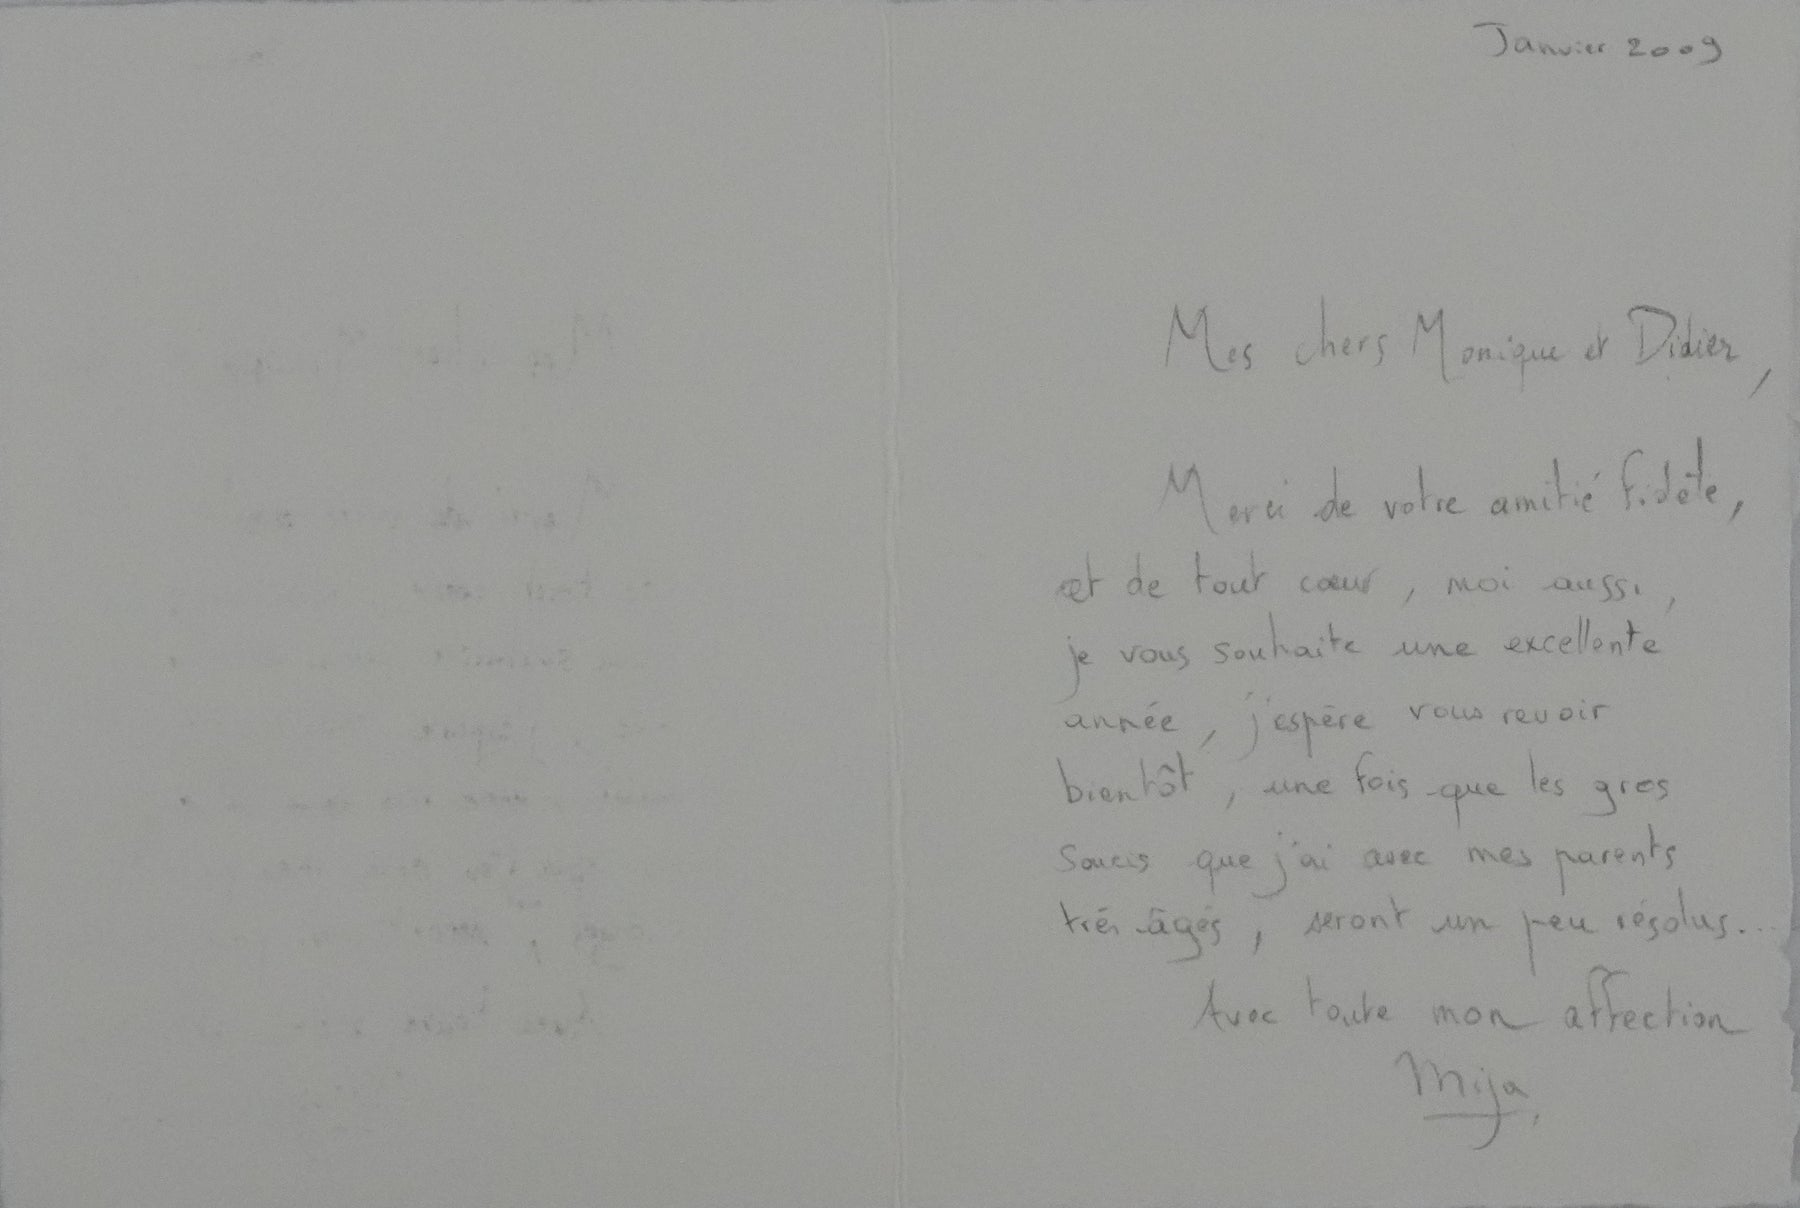 Janvier 2009
Mes chers Monique et Didier,
Merci de votre amitié fidèle,
et de tout cœur, moi aussi,
je vous souhaite une excellente
année, j'espère vous revoir
bientôt, une fois que les gros
soucis que j'ai avec mes parents
très âgés, seront un peu résolus...
Avec toute mon affection
Mija